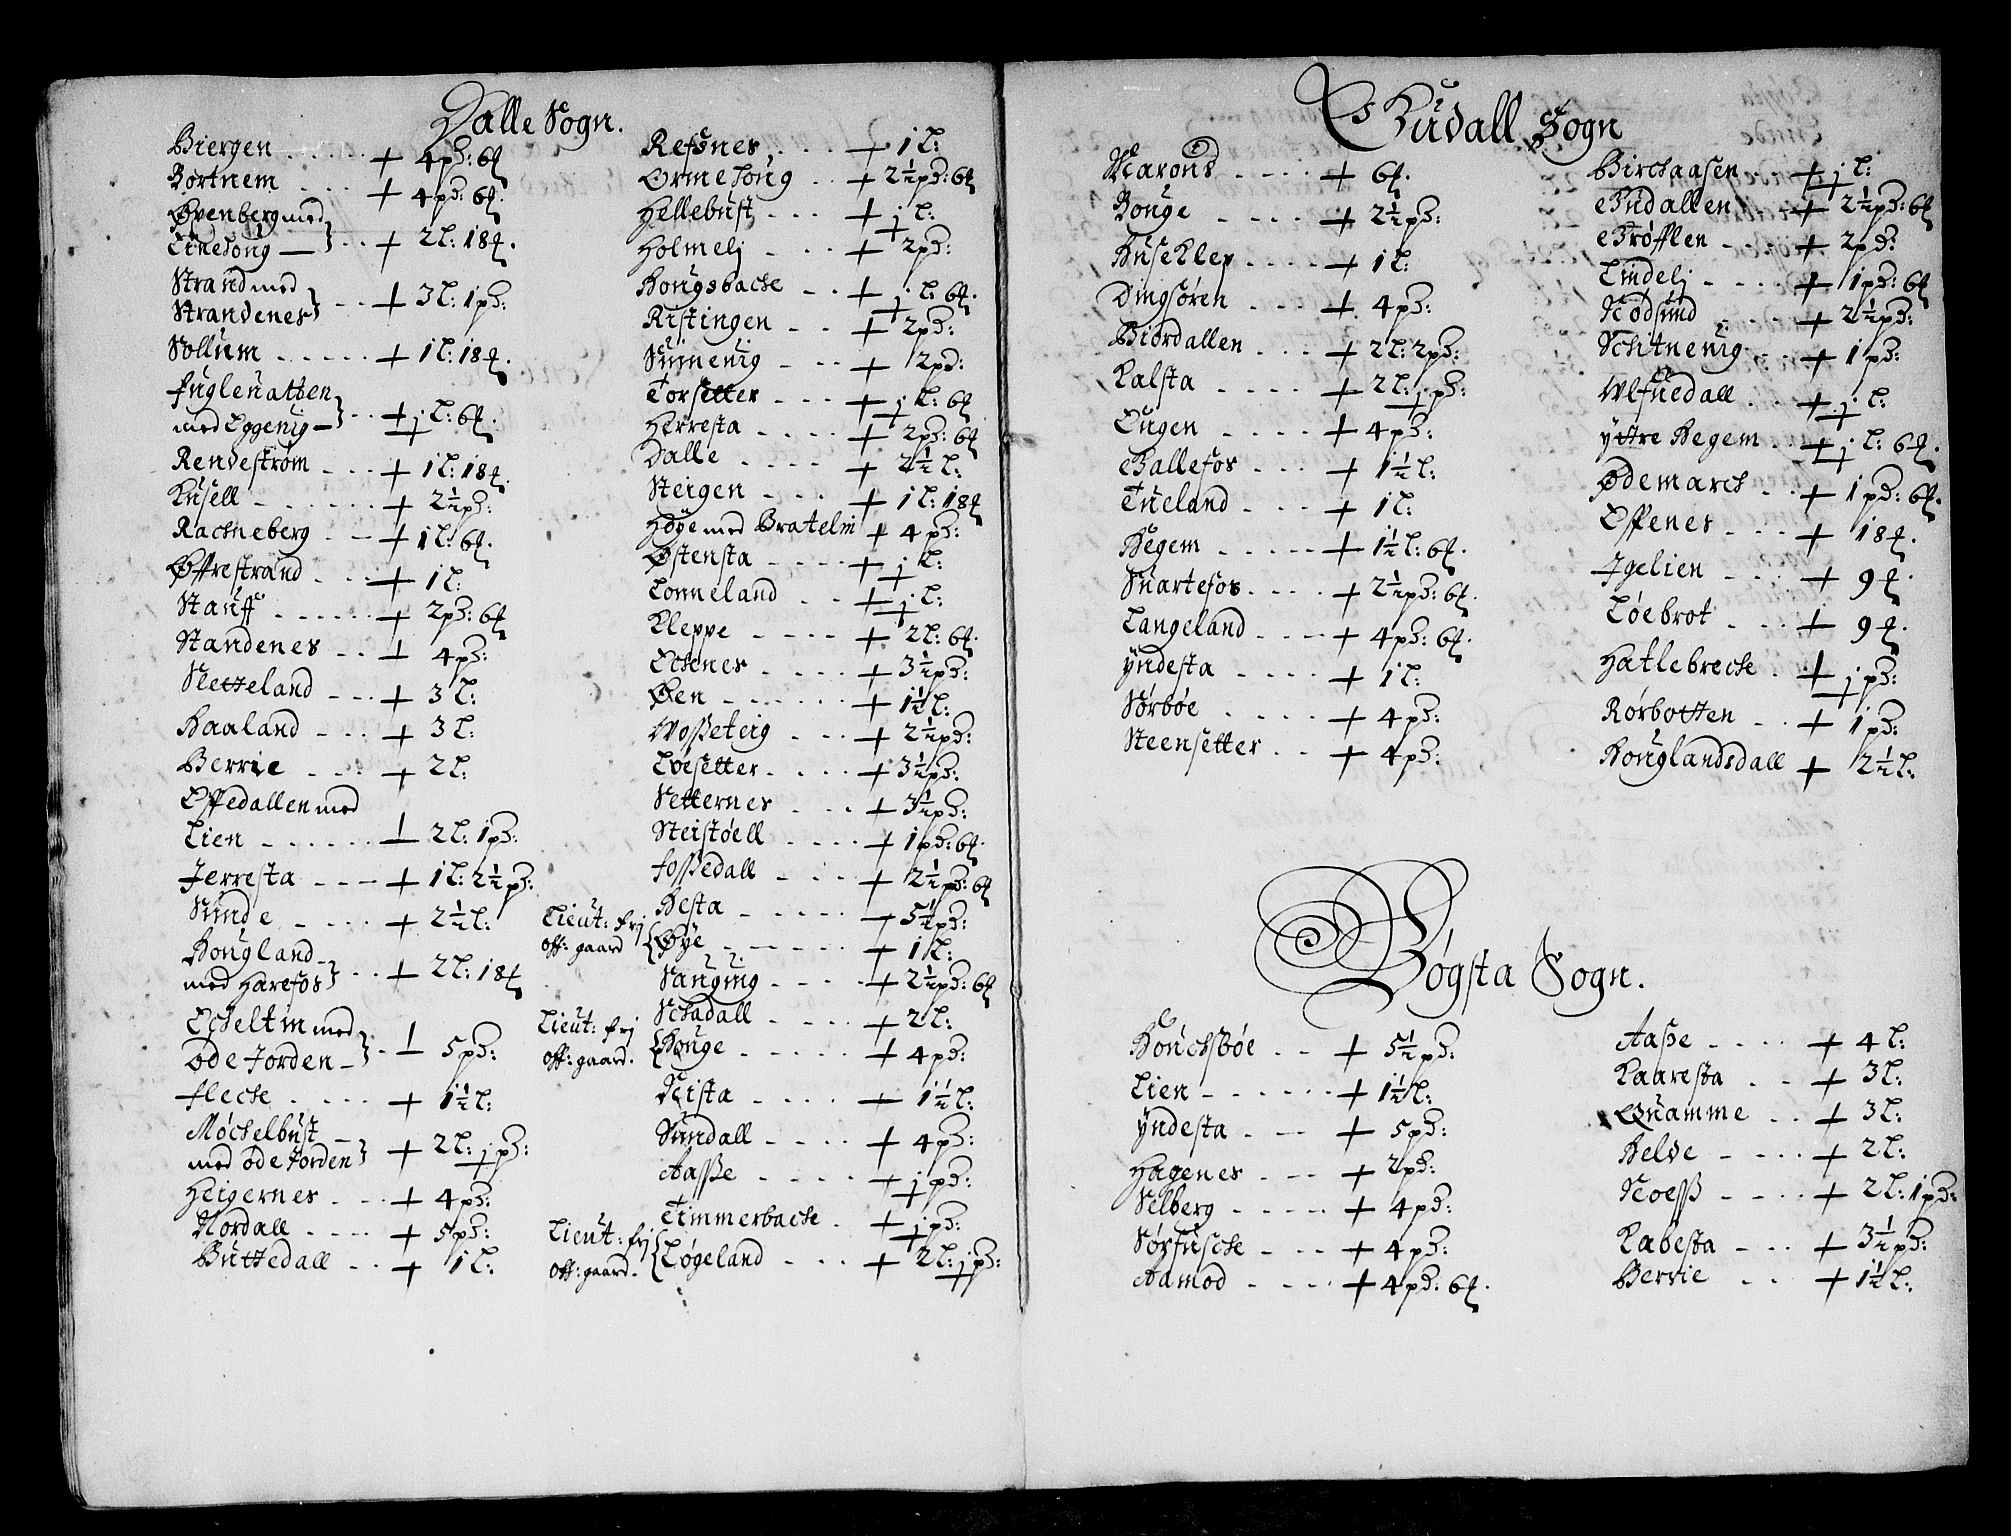 Dalle Sogn.
Biergen . . . . . + 4pd: 6℔
Bortnem . . . . + 4pd: 6℔.
Øvenberg med
Einehoug — } . . + 2l: 18℔.
Strand med
Strandenes } . . + 3l: 1pd:
Sollum . . . . . + 1l: 18℔.
Fuglenatten
med Eggenig — } . . + j l: 6℔.
Rendestrøm . . . + 1l: 18℔.
Kusell . . . . . + 2½pd:
Rachneberg . . + 1l: 6℔.
Øffrestrand . . . + 1l:
Stauff . . . . . + 2pd: 6℔
Standenes . . + 4pd:
Sletteland . . . + 3l:
Haaland . . . + 3l:
Berrie . . . + 2l:
Espedallen med
Lien . . . . . . + 2l: 1pd:
Jerresta . . . + 1l: 2½pd:
Sunde . . . . + 2½l:
Hougland
med Harefos } . . + 2l: 18℔
Echeltin med
øde Jorden — } . + 5pd:
Fleche . . . . + 1½l:
Møchelbust
med øde Jorden } + 2l: j pd:
Heigernes . . . + 4pd:
Nordall . . . . + 5pd:
Buttedall . . + 1l:
Refsnes . . . + 1l:
Ormehoug . . + 2½pd: 6℔
Hellebust . . . + j l:
Holmelj . . . + 2pd:
Hougsbache . . + j l: 6℔.
Ristingen . . + 2pd:
Sumenig . . . + 2pd:
Torsetter . . . + j l: 6℔
Herresta . . . . + 2pd: 6℔
Dalle . . . . + 2½l:
Steigen . . . + 1l: 18℔
Høye med Bratelin + 4pd:
Østensta . . . . + j l:
Lonneland . . + j l:
Kleppe . . . . + 2l: 6℔.
Echnes . . . . . + 3½pd:
Øen . . . . . . + 1½l:
Wosseteig . . . + 2½pd:
Loesetter . . . . + 3½pd:
Setternes . . . + 3½pd:
Steistøell . . . . + 1pd: 6℔.
Fossedall . . . + 2½pd: 6℔
Hesta . . . . . + 5½pd:
Lieut: frj
off: gaard { Øye . . . . . + 1l:
Sanging . . . . + 2½pd: 6℔
Schadall . . . + 2l:
Lieut: frj
off: gaard. { Houge . . . . + 4pd:
Nista . . . . + 1½l:
Sundall . . . . + 4pd:
Aasse . . . . . + j pd:
Timmerbache . + j pd:
Lieut: frj
off: gaard. { Løgeland . . . + 2l: j pd:
Guldall Sogn
Houge . . . . + 2½pd:
Husekley . . . . + 1l:
Dingsøren . . . + 4pd:
Biordallen . . . + 2l: 2pd:
Kalsta . . . . + 2l: j pd:
Eugen . . . . + 4pd:
Gallefos . . . + 1½l:
Tueland . . . + 1l:
Hegem . . . . . + 1½l: 6℔.
Svartefos . . . . + 2½pd: 6℔.
Langeland . . . . + 4pd: 6℔.
Yndesta . . . . + 1l:
Sørbøe . . . . + 4pd:
Steensetter . . + 4pd:
Birchaasen + j l:
Gudallen + 2½pd: 6℔
Grøfflen . . . + 2pd:
Lindelj . . . . + 1pd: 6℔
Nødsund . . . + 2½pd:
Schitnenig . . + 1pd:
Ulfuedall . . + j l:
Yttre Hegem . + j l: 6℔.
Ødemarch . . + 1pd: 6℔.
Espenes . . . + 18℔.
Igelien . . . + 9℔.
Løebrot . . . + 9℔.
Hatlebreche . + j pd:
Rørbotten . . + 1pd:
Houglandsdall + 2½l:
Bøgsta Sogn.
Hønchsbøe . . + 5½pd:
Lien . . . . . + 1½l:
Yndesta . . . + 5pd:
Hagenes . . . + 2pd:
Selberg . . . . + 4pd:
Sørfusche . . . + 4pd:
Aamod . . . . + 4pd: 6℔.
Aasse . . . . + 4l:
Kaaresta . . + 3l:
Quamme . . + 3l:
Helde . . . . + 2l:
Noess . . . . + 2l: 1pd:
Labesta . . . + 3½pd:
Berrie . . + 1½l: